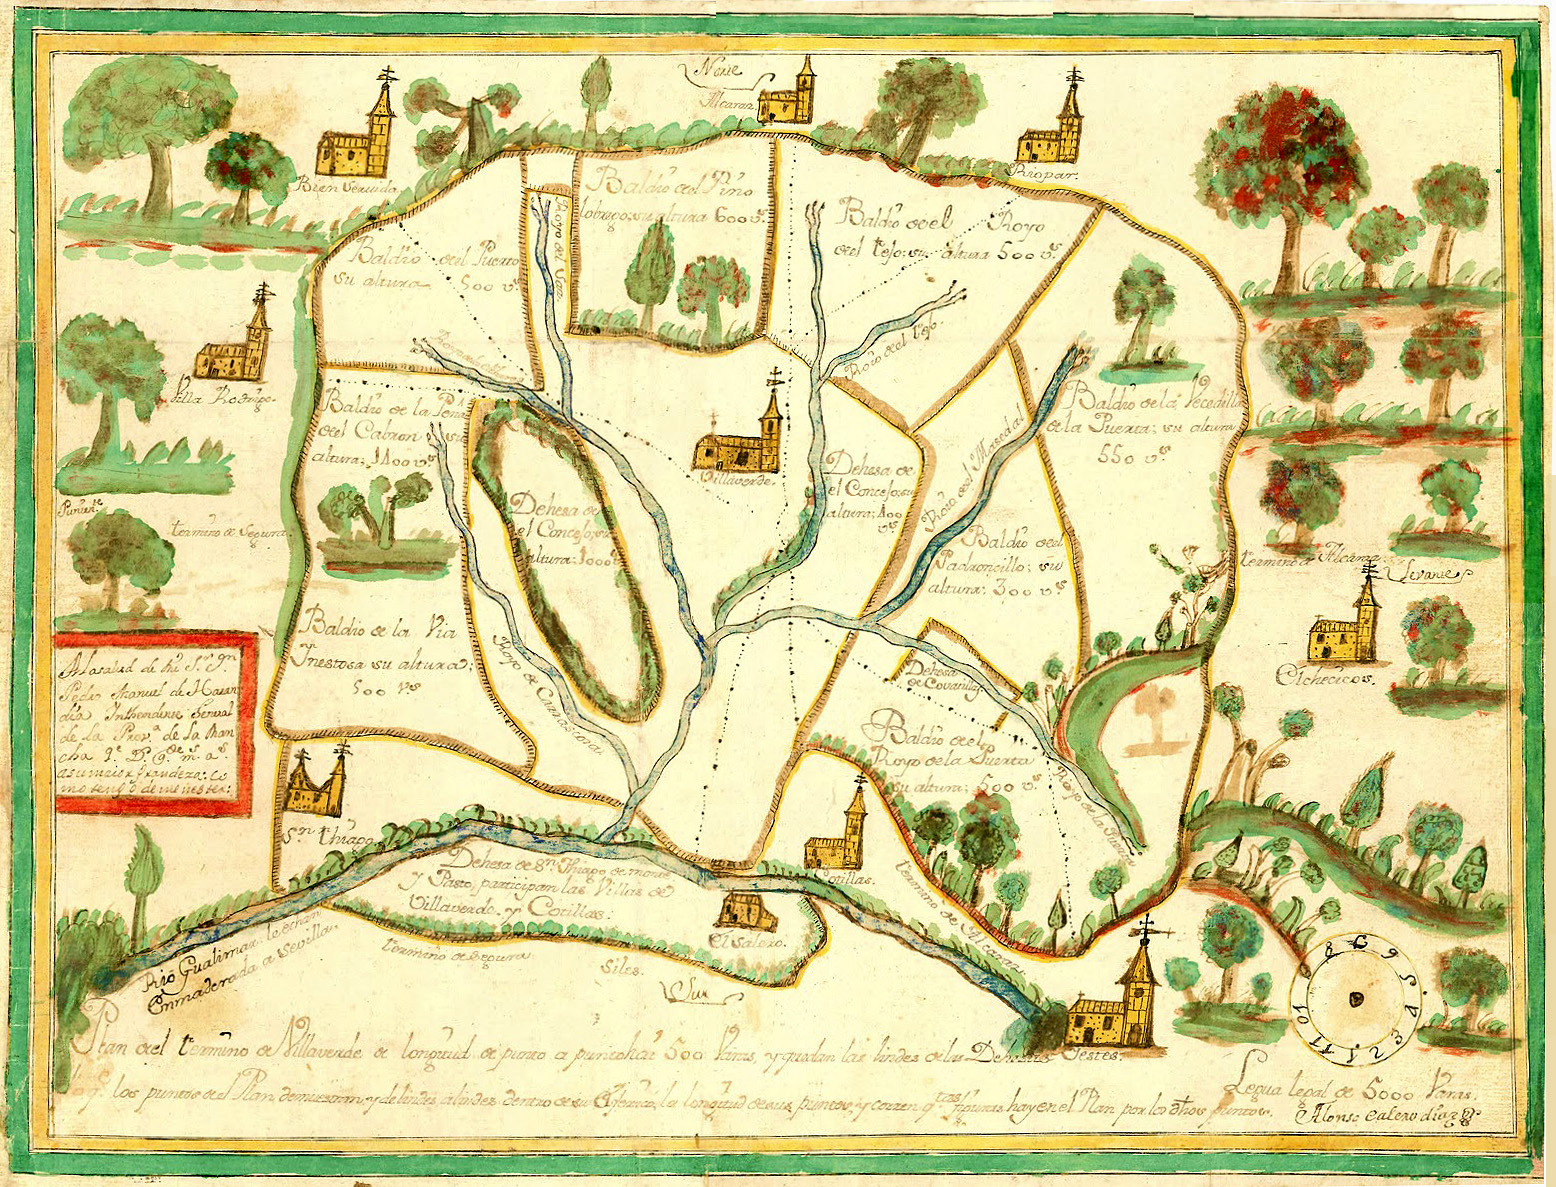 Norte
Alcaraz
Bien Servida
Riopar
Baldio del Pino
lobrego; su altura 600 vs
Baldio del Royo
del tejo; su altura 500 vs
Baldio del Puerto
su altura 500 vs
Royo del
Royo del tejo
Villa Rodrigo
Baldio de la Peña
del Cabron su
altura; 1400 vs
Baldio de la Vecedilla
de la Puerta; su altura
550 vs
Villaverde
Royo del Masegal
Dehesa de
el Concejo; su
altura; 400
vs
Dehesa de
el Concejo; su
altura; 1000 vs
Baldio del
Padroncillo; su
altura; 300 vs
Poniente
termino de Segura
termino de Alcaraz
Levante
Elchecicos
Baldio de la Via
Ynestosa su altura;
500 vs
Royo de
Dehesa
A la salud de mi Sr. Dn
Pedro Manuel de
Inthendente General
de la Prova de la Man
cha qe D. Ge ms as
asumeior grandeza: co
mo tengo de menester;
Baldio del
Royo de la Puerta
su altura; 500 vs
Royo de la Puerta
Sn thiago
Cotillas
Dehesa de Sn thiago de monte
y Pasto, participan las Villas de
Villaverde y Cotillas:
El Salero
termino de Alcaraz
Rio Gualimar le echan
Enmaderada a Sevilla
termino de Segura
Siles
Sur
8 9 5 4 3 2 1 11 10
Yestes
Plan del termino de Villaverde de longitud de punto a punto hai 500 Varas, y quedan las lindes de las Dehesas
los puntos del Plan demuestran y de lindes a lindes dentro de su la longitud de sus puntos, y corren figuras hay en el Plan por los dhos puntos.
Legua legal de 5000 Varas.
Alonso Calero diaz